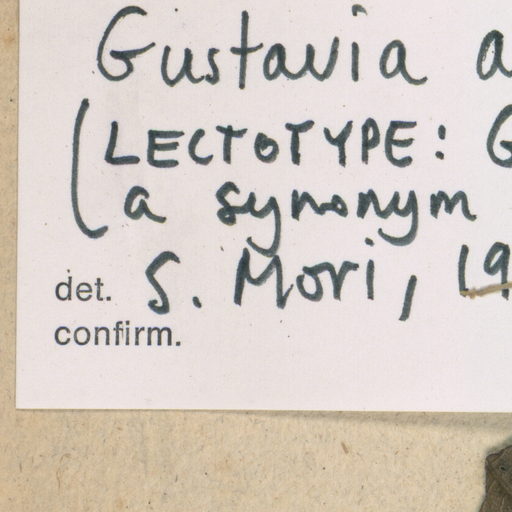 Gustavia a
(LECTOTYPE: G
a synonym
det. S. Mori, 19
confirm.